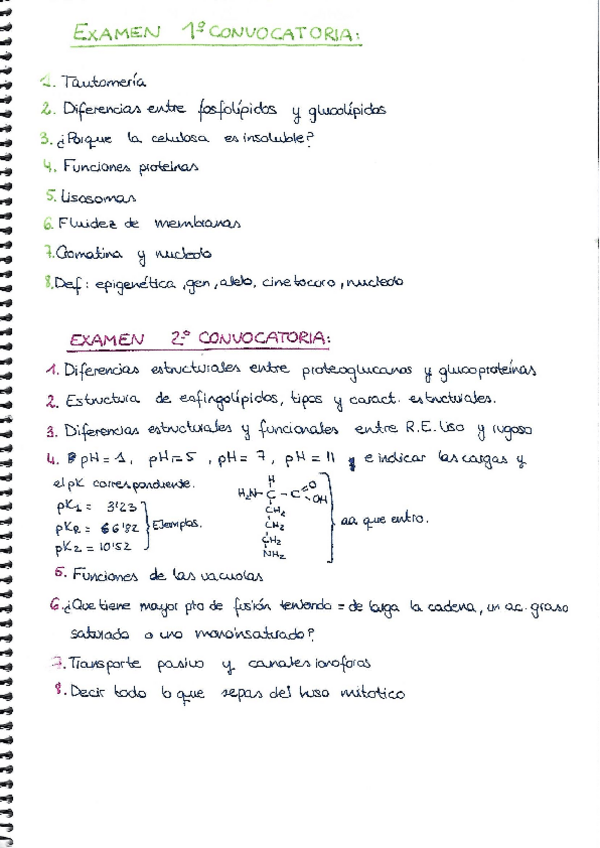 EXAMEN 1º CONVOCATORIA:
1. Tautomería
2. Diferencias entre fosfolípidos y glucolípidos
3. ¿Porque la celulosa es insoluble?
4. Funciones proteínas
5. Lisosomas
6. Fluidez de membranas
7. Cromatina y nucleolo
8. Def: epigenética, gen, alelo, cinetocoro, nucleolo
EXAMEN 2º CONVOCATORIA:
1. Diferencias estructurales entre proteoglucanos y glucoproteínas
2. Estructura de esfingolípidos, tipos y caract. estructurales.
3. Diferencias estructurales y funcionales entre R.E. liso y rugoso
4. pH = 1, pH = 5, pH = 7, pH = 11 e indicar las cargas y
el pK correspondiente.
pK1 = 3'23
pKR = 6'82
pK2 = 10'52
Ejemplos.
H
H2N - C - C O OH
CH2
CH2
CH2
NH2
aa que entro.
5. Funciones de las vacuolas
6. ¿Que tiene mayor pto de fusión teniendo = de larga la cadena, un ac. graso
saturado o uno monoinsaturado?
7. Transporte pasivo y canales ionoforos
8. Decir todo lo que sepas del huso mitotico